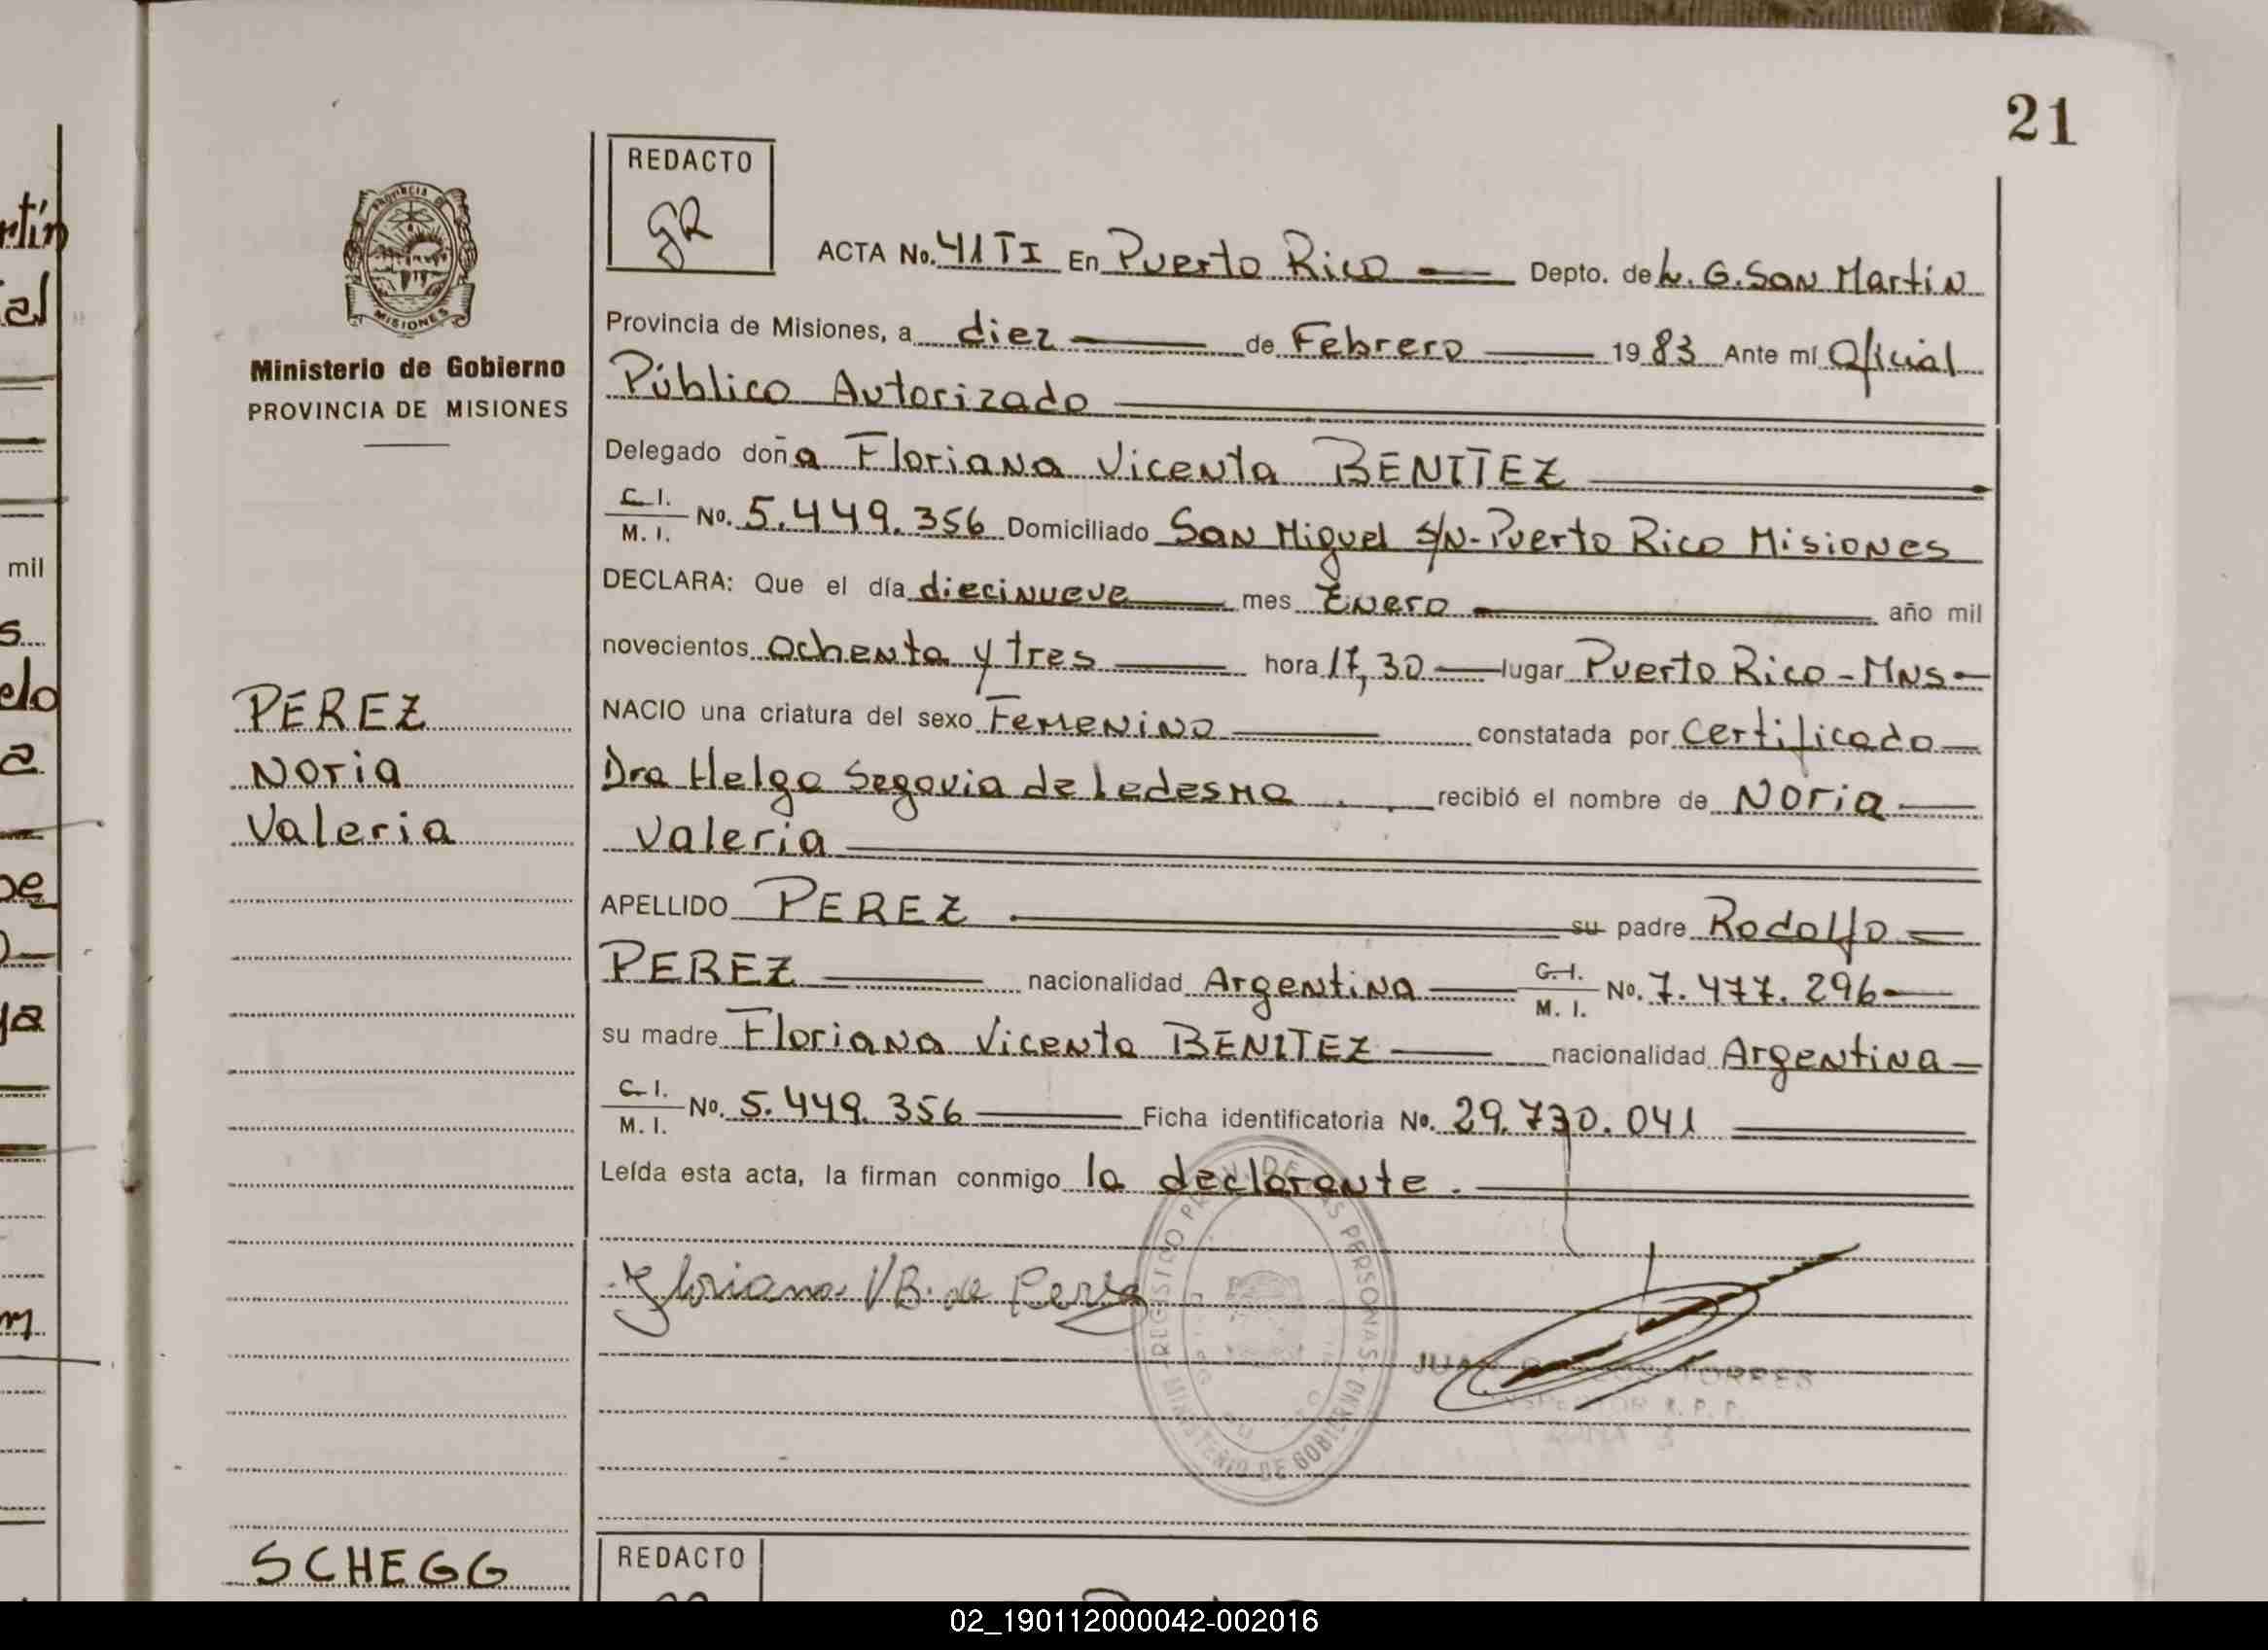 21
REDACTO
gR
PROVINCIA DE
MISIONES
Ministerio de Gobierno
PROVINCIA DE MISIONES
ACTA No. 41 TI En Puerto Rico Depto. de L. G. San Martin
Provincia de Misiones, a diez de Febrero 1983 Ante mí Oficial
Público Autorizado
Delegado doña Floriana Vicenta BENITEZ
C. I. / M. I. No. 5.449.356 Domiciliado San Miguel S/N-Puerto Rico Misiones
DECLARA: Que el día diecinueve mes Enero año mil
novecientos Ochenta y tres hora 17,30 lugar Puerto Rico - Mns
PEREZ
NACIO una criatura del sexo Femenino constatada por Certificado
Noria
Dra Helga Segovia de Ledesma recibió el nombre de Noria
Valeria
Valeria
APELLIDO PEREZ su padre Rodolfo
PEREZ nacionalidad Argentina C. I. / M. I. No. 7.477.296
su madre Floriana Vicenta BENITEZ nacionalidad Argentina
C. I. / M. I. No. 5.449.356 Ficha identificatoria No. 29.730.041
Leída esta acta, la firman conmigo la declarante.
Floriana V B. de Perez
REGISTRO PROV. DE LAS PERSONAS
MINISTERIO DE GOBIERNO
JUAN TORRES
INSPECTOR R. P. P.
SCHEGG
REDACTO
mil
02_190112000042-002016